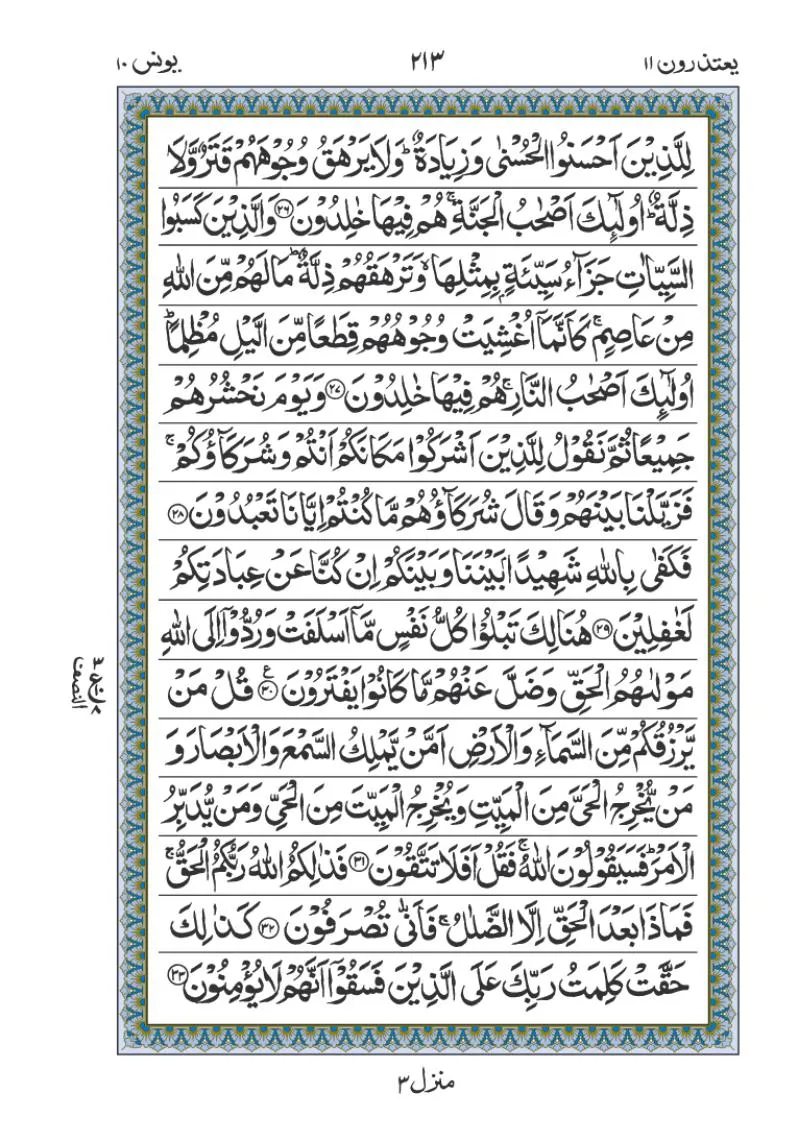 یعتذرون ۱۱
۲۱۳
یونس ۱۰
لِلَّذِیْنَ اَحْسَنُوا الْحُسْنٰی وَ زِیَادَةٌ ؕ وَ لَا یَرْهَقُ وُجُوْهَهُمْ قَتَرٌ وَّ لَا
ذِلَّةٌ ؕ اُولٰٓىِٕكَ اَصْحٰبُ الْجَنَّةِ ۚ هُمْ فِیْهَا خٰلِدُوْنَ ﴿۲۶﴾ وَ الَّذِیْنَ كَسَبُوا
السَّیِّاٰتِ جَزَآءُ سَیِّئَةٍۭ بِمِثْلِهَا ۙ وَ تَرْهَقُهُمْ ذِلَّةٌ ؕ مَا لَهُمْ مِّنَ اللّٰهِ
مِنْ عَاصِمٍ ۚ كَاَنَّمَاۤ اُغْشِیَتْ وُجُوْهُهُمْ قِطَعًا مِّنَ الَّیْلِ مُظْلِمًا ؕ
اُولٰٓىِٕكَ اَصْحٰبُ النَّارِ ۚ هُمْ فِیْهَا خٰلِدُوْنَ ﴿۲۷﴾ وَ یَوْمَ نَحْشُرُهُمْ
جَمِیْعًا ثُمَّ نَقُوْلُ لِلَّذِیْنَ اَشْرَكُوْا مَكَانَكُمْ اَنْتُمْ وَ شُرَكَآؤُكُمْ ۚ
فَزَیَّلْنَا بَیْنَهُمْ وَ قَالَ شُرَكَآؤُهُمْ مَّا كُنْتُمْ اِیَّانَا تَعْبُدُوْنَ ﴿۲۸﴾
فَكَفٰی بِاللّٰهِ شَهِیْدًۢا بَیْنَنَا وَ بَیْنَكُمْ اِنْ كُنَّا عَنْ عِبَادَتِكُمْ
لَغٰفِلِیْنَ ﴿۲۹﴾ هُنَالِكَ تَبْلُوْا كُلُّ نَفْسٍ مَّاۤ اَسْلَفَتْ وَ رُدُّوْۤا اِلَی اللّٰهِ
مَوْلٰىهُمُ الْحَقِّ وَ ضَلَّ عَنْهُمْ مَّا كَانُوْا یَفْتَرُوْنَ ﴿۳۰﴾ ع قُلْ مَنْ
یَّرْزُقُكُمْ مِّنَ السَّمَآءِ وَ الْاَرْضِ اَمَّنْ یَّمْلِكُ السَّمْعَ وَ الْاَبْصَارَ وَ
مَنْ یُّخْرِجُ الْحَیَّ مِنَ الْمَیِّتِ وَ یُخْرِجُ الْمَیِّتَ مِنَ الْحَیِّ وَ مَنْ یُّدَبِّرُ
الْاَمْرَ ؕ فَسَیَقُوْلُوْنَ اللّٰهُ ۚ فَقُلْ اَفَلَا تَتَّقُوْنَ ﴿۳۱﴾ فَذٰلِكُمُ اللّٰهُ رَبُّكُمُ الْحَقُّ ۚ
فَمَا ذَا بَعْدَ الْحَقِّ اِلَّا الضَّلٰلُ ۚ فَاَنّٰی تُصْرَفُوْنَ ﴿۳۲﴾ كَذٰلِكَ
حَقَّتْ كَلِمَتُ رَبِّكَ عَلَی الَّذِیْنَ فَسَقُوْۤا اَنَّهُمْ لَا یُؤْمِنُوْنَ ﴿۳۳﴾
النصف
منزل ۳